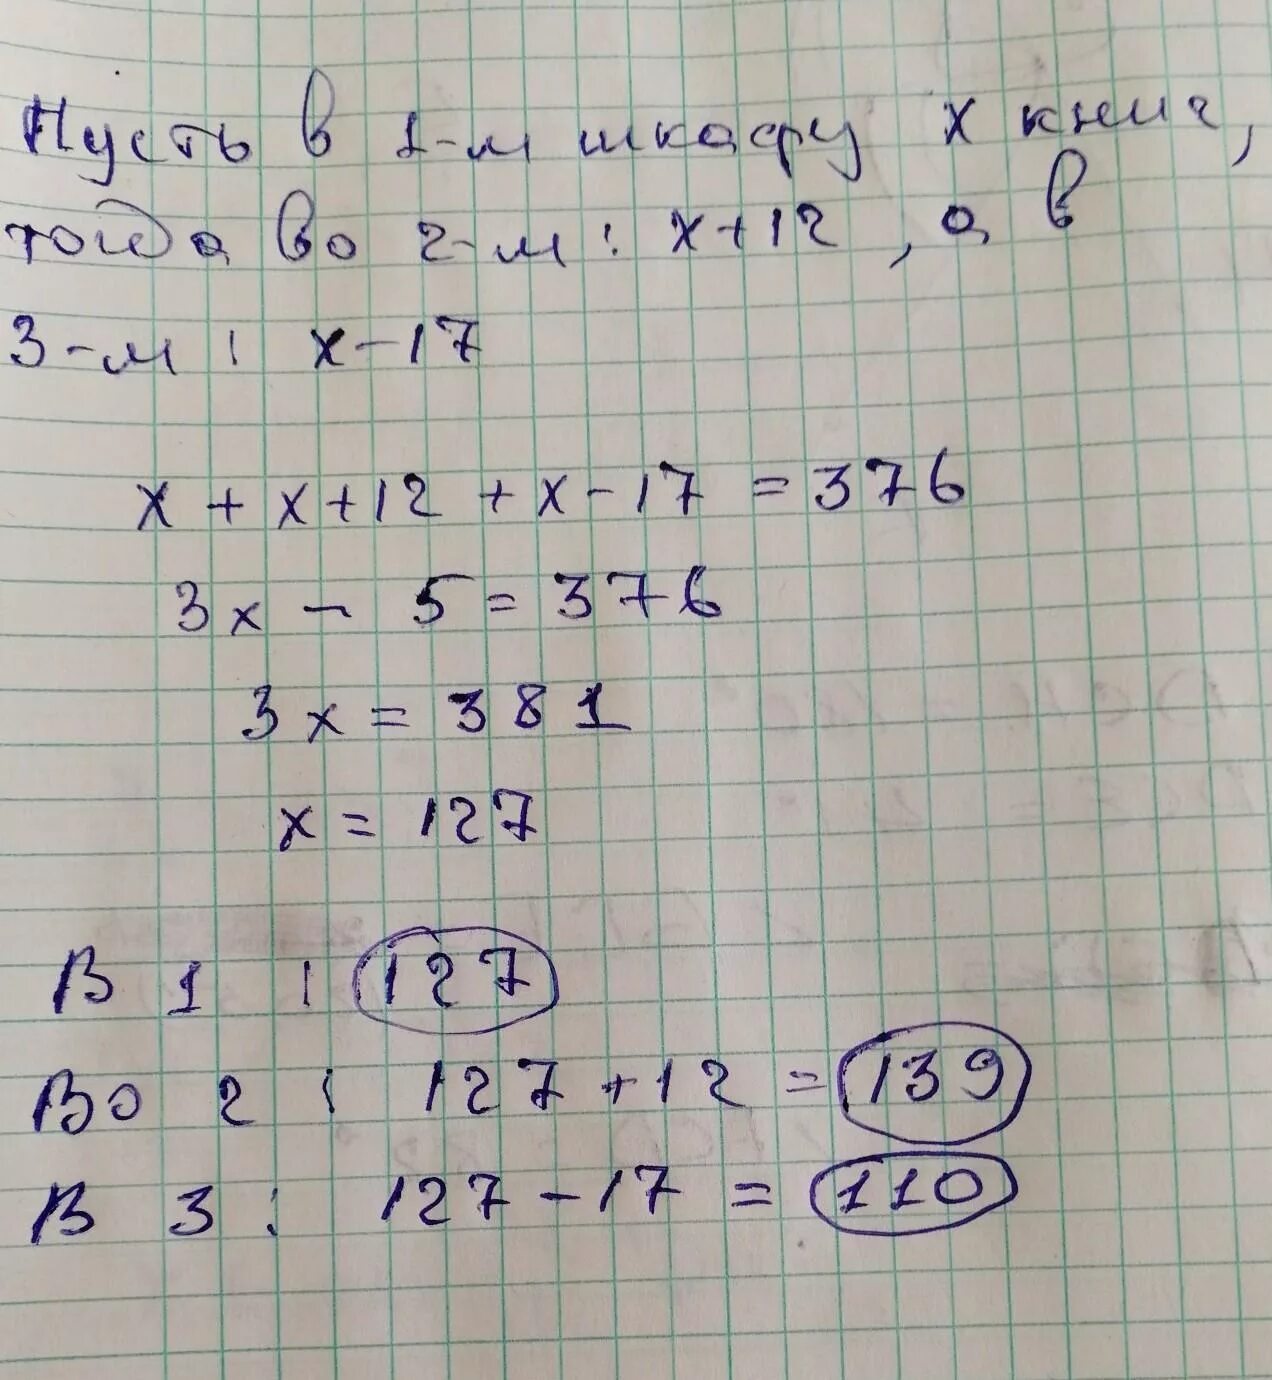 Пусть в 1-м шкафу x книг,
тогда во 2-м: x+12, а в
3-м: x-17
x + x+12 + x-17 = 376
3x - 5 = 376
3x = 381
x = 127
В 1: 127
Во 2: 127+12 = 139
В 3: 127-17 = 110